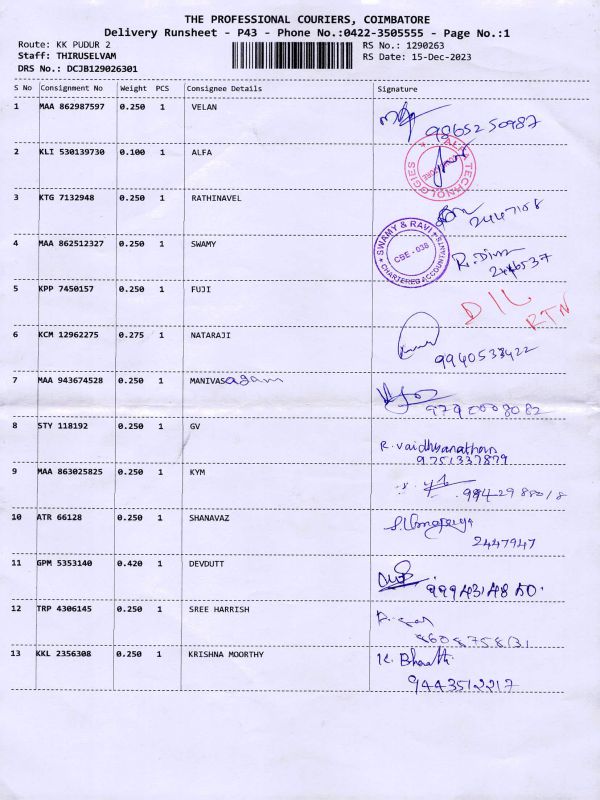 THE PROFESSIONAL COURIERS, COIMBATORE
Delivery Runsheet - P43 - Phone No.:0422-3505555 - Page No.:1
Route: KK PUDUR 2 RS No.: 1290263
Staff: THIRUSELVAM RS Date: 15-Dec-2023
DRS No.: DCJB129026301
S No Consignment No Weight PCS Consignee Details Signature
1 MAA 862987597 0.250 1 VELAN
9865250987
2 KLI 530139730 0.100 1 ALFA
ALFA TECHNOLOGIES
3 KTG 7132948 0.250 1 RATHINAVEL
2447108
4 MAA 862512327 0.250 1 SWAMY
SWAMY & RAVI
CBE - 038
CHARTERED ACCOUNTANTS
5 KPP 7450157 0.250 1 FUJI
D/L RTN
6 KCM 12962275 0.275 1 NATARAJI
9940533422
7 MAA 943674528 0.250 1 MANIVASagam
8 STY 118192 0.250 1 GV
R. Vaidhyanathan
9751337879
9 MAA 863025825 0.250 1 KYM
10 ATR 66128 0.250 1 SHANAVAZ
2447947
11 GPM 5353140 0.420 1 DEVDUTT
12 TRP 4306145 0.250 1 SREE HARRISH
9608758131
13 KKL 2356308 0.250 1 KRISHNA MOORTHY
K. Bharathi
9443512217